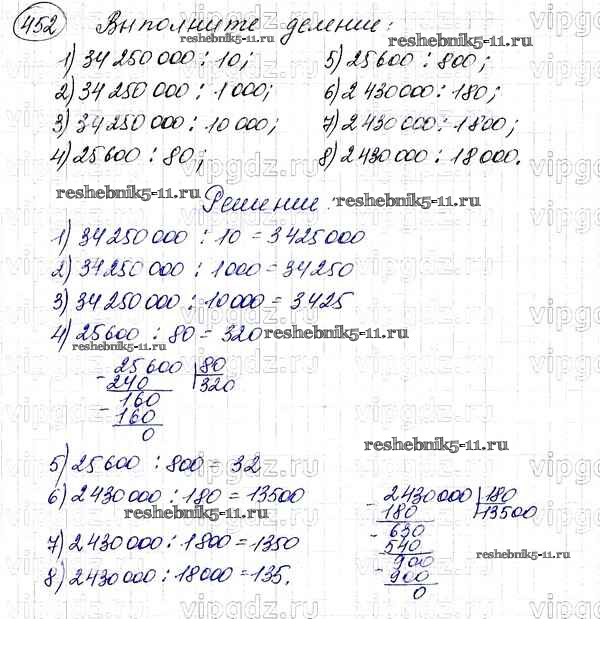 452 Выполните деление:
1) 34 250 000 : 10; 5) 25 600 : 800;
2) 34 250 000 : 1 000; 6) 2 430 000 : 180;
3) 34 250 000 : 10 000; 7) 2 430 000 : 1800;
4) 25 600 : 80; 8) 2 430 000 : 18 000.
reshebnik5-11.ru
Решение: reshebnik5-11.ru
1) 34 250 000 : 10 = 3 425 000
2) 34 250 000 : 1000 = 34 250
3) 34 250 000 : 10 000 = 3425
4) 25 600 : 80 = 320 reshebnik5-11.ru
reshebnik5-11.ru
- 25600 | 80
240 320
- 160
160
0
5) 25600 : 800 = 32
6) 2 430 000 : 180 = 13500
reshebnik5-11.ru
7) 2 430 000 : 1800 = 1350
8) 2 430 000 : 18 000 = 135.
reshebnik5-11.ru
- 2430000 | 180
180 13500
- 630
540
- 900
900
0
reshebnik5-11.ru
vipgdz.ru